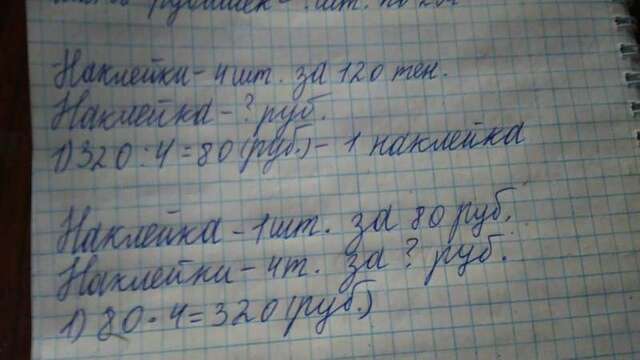 рубашек - шт. по
Наклейки - 4 шт. за 120 тен.
Наклейка - ? руб.
1) 320 : 4 = 80 (руб.) - 1 наклейка
Наклейка - 1 шт. за 80 руб.
Наклейки - 4т. за ? руб.
1) 80 · 4 = 320 (руб.)